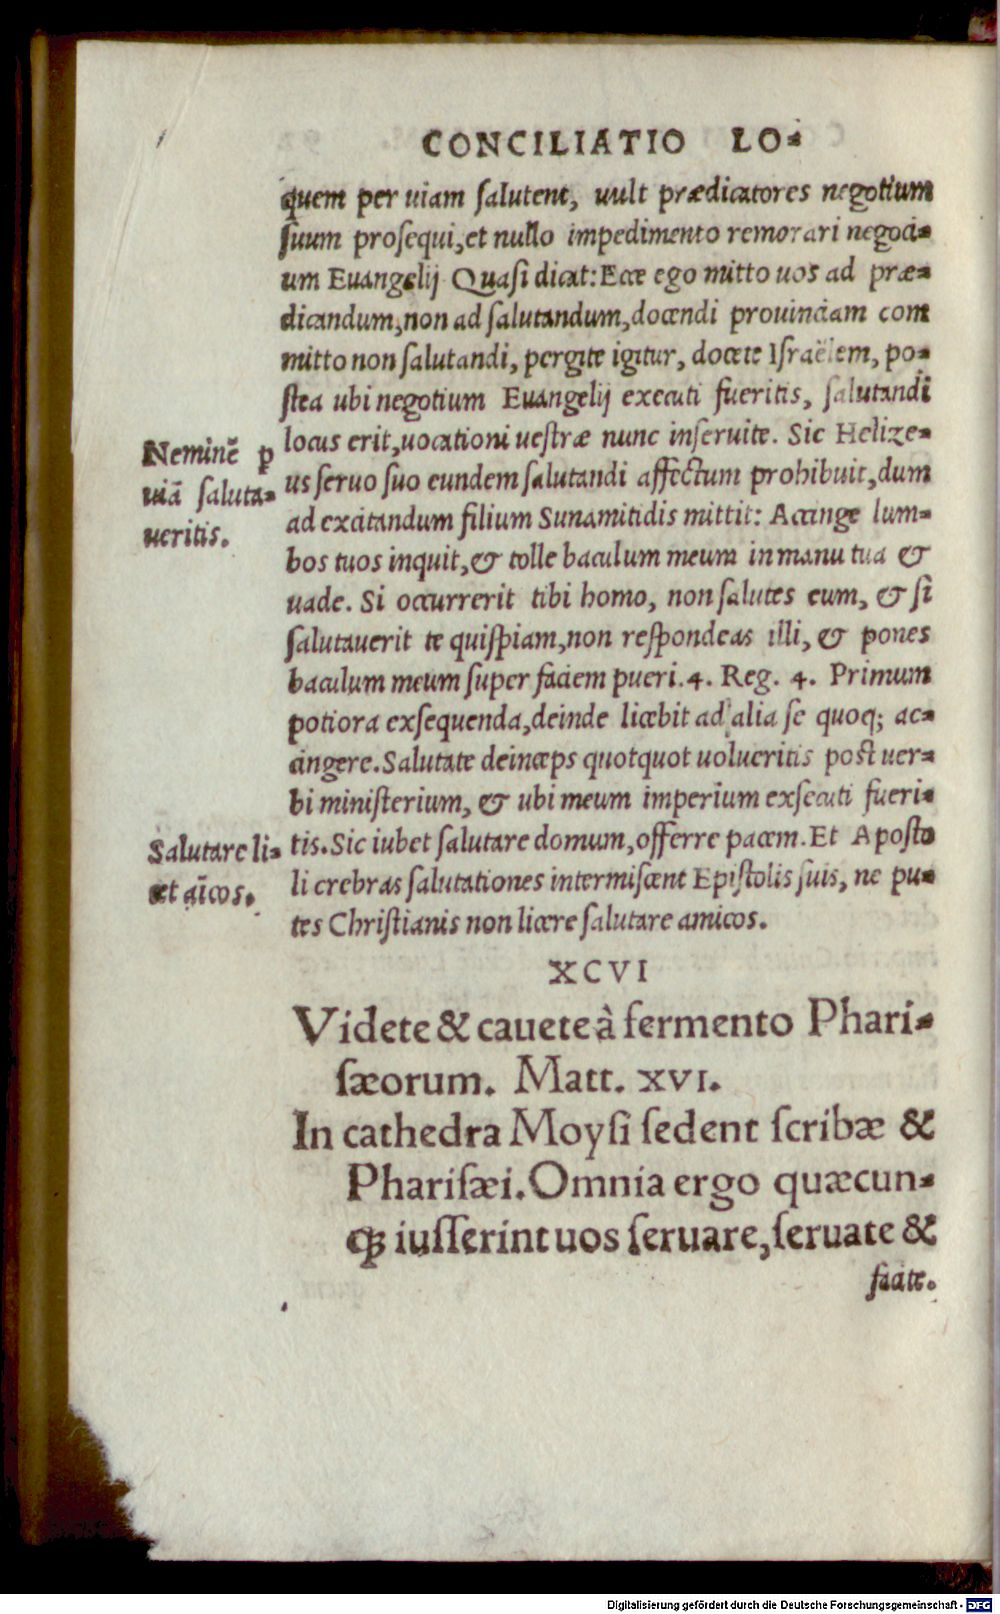 CONCILIATIO LO-
quem per uiam ſalutent, uult prædicatores negotium
ſuum proſequi, et nullo impedimento remorari negoci-
um Euangelij Quaſi dicat: Ecce ego mitto uos ad præ-
dicandum, non ad ſalutandum, docendi prouinciam com
mitto non ſalutandi, pergite igitur, docete Iſraëlem, po-
ſtea ubi negotium Euangelij executi fueritis, ſalutandi
locus erit, uocationi ueſtræ nunc inſeruite. Sic Helize-
us ſeruo ſuo eundem ſalutandi affectum prohibuit, dum
ad excitandum filium Sunamitidis mittit: Accinge lum-
bos tuos inquit, & tolle baculum meum in manu tua &
uade. Si occurrerit tibi homo, non ſalutes eum, & ſi
ſalutauerit te quiſpiam, non reſpondeas illi, & pones
baculum meum ſuper faciem pueri. 4. Reg. 4. Primum
potiora exſequenda, deinde licebit ad alia ſe quoq; ac-
cingere. Salutate deinceps quotquot uolueritis poſt uer-
bi miniſterium, & ubi meum imperium exſecuti fueri-
tis. Sic iubet ſalutare domum, offerre pacem. Et Apoſto
li crebras ſalutationes intermiſcent Epiſtolis ſuis, ne pu-
tes Chriſtianis non licere ſalutare amicos.
Neminē ꝑ
uiā ſaluta-
ueritis.
Salutare li-
cet aīcos.
XCVI
Videte & cauete à fermento Phari-
ſæorum. Matt. XVI.
In cathedra Moyſi ſedent ſcribæ &
Phariſæi. Omnia ergo quæcun-
qꝫ iuſſerint uos ſeruare, ſeruate &
facite.
Digitalisierung gefördert durch die Deutsche Forschungsgemeinschaft - DFG